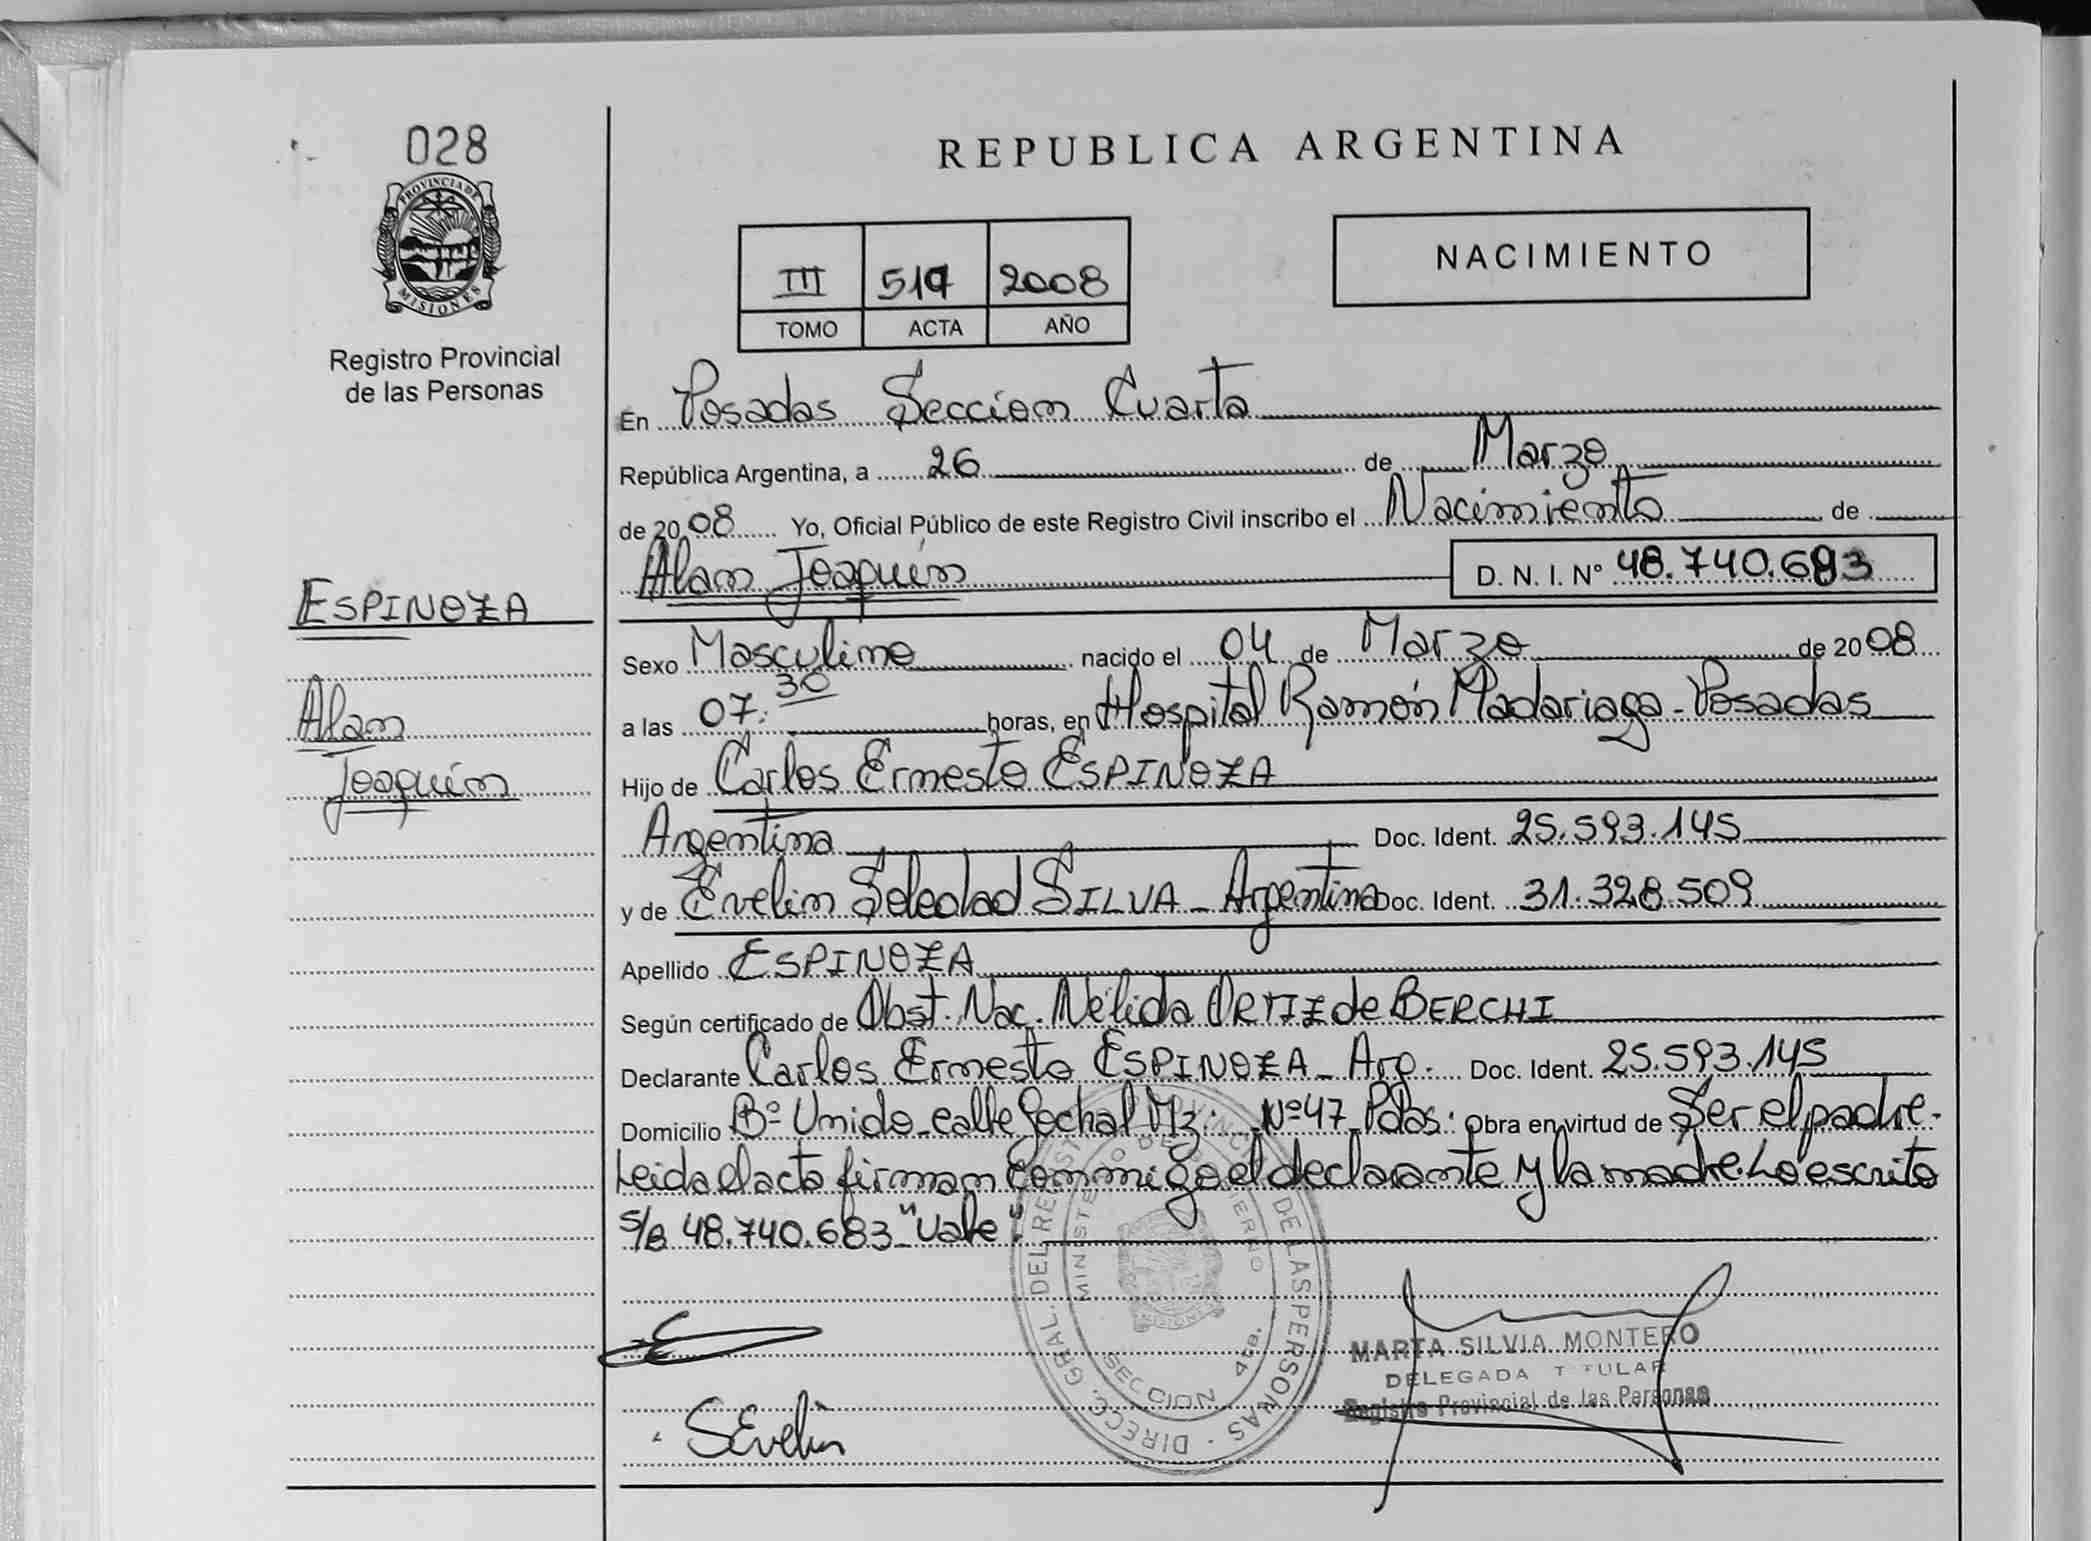 028
PROVINCIA DE
MISIONES
Registro Provincial
de las Personas
ESPINOZA
Alan
Joaquín
REPUBLICA ARGENTINA
III 519 2008
TOMO ACTA AÑO
NACIMIENTO
En Posadas Seccion Cuarta
República Argentina, a 26 de Marzo
de 2008 Yo, Oficial Público de este Registro Civil inscribo el Nacimiento de
Alan Joaquín D. N. I. Nº 48.740.683
Sexo Masculino nacido el 04 de Marzo de 2008
a las 07:30 horas, en Hospital Ramón Madariaga - Posadas
Hijo de Carlos Ernesto ESPINOZA
Argentina Doc. Ident. 25.593.145
y de Evelin Soledad SILVA - Argentina Doc. Ident. 31.328.509
Apellido ESPINOZA
Según certificado de Obst. Nac. Nélida ORTIZ de BERCHI
Declarante Carlos Ernesto ESPINOZA - Arg. Doc. Ident. 25.593.145
Domicilio Bº Unido - calle Mz: Nº 47 Pdas. Obra en virtud de Ser el padre.
Leida el acta firman conmigo el declarante y la madre. Lo escrito
S/B 48.740.683 "Vale".
DIRECC. GRAL. DEL REGIST PROVINCIAL DE LAS PERSONAS
MINISTERIO DE GOBIERNO
MISIONES
SECCION 4ta.
MARTA SILVIA MONTERO
DELEGADA TITULAR
Registro Provincial de las Personas
SEvelin